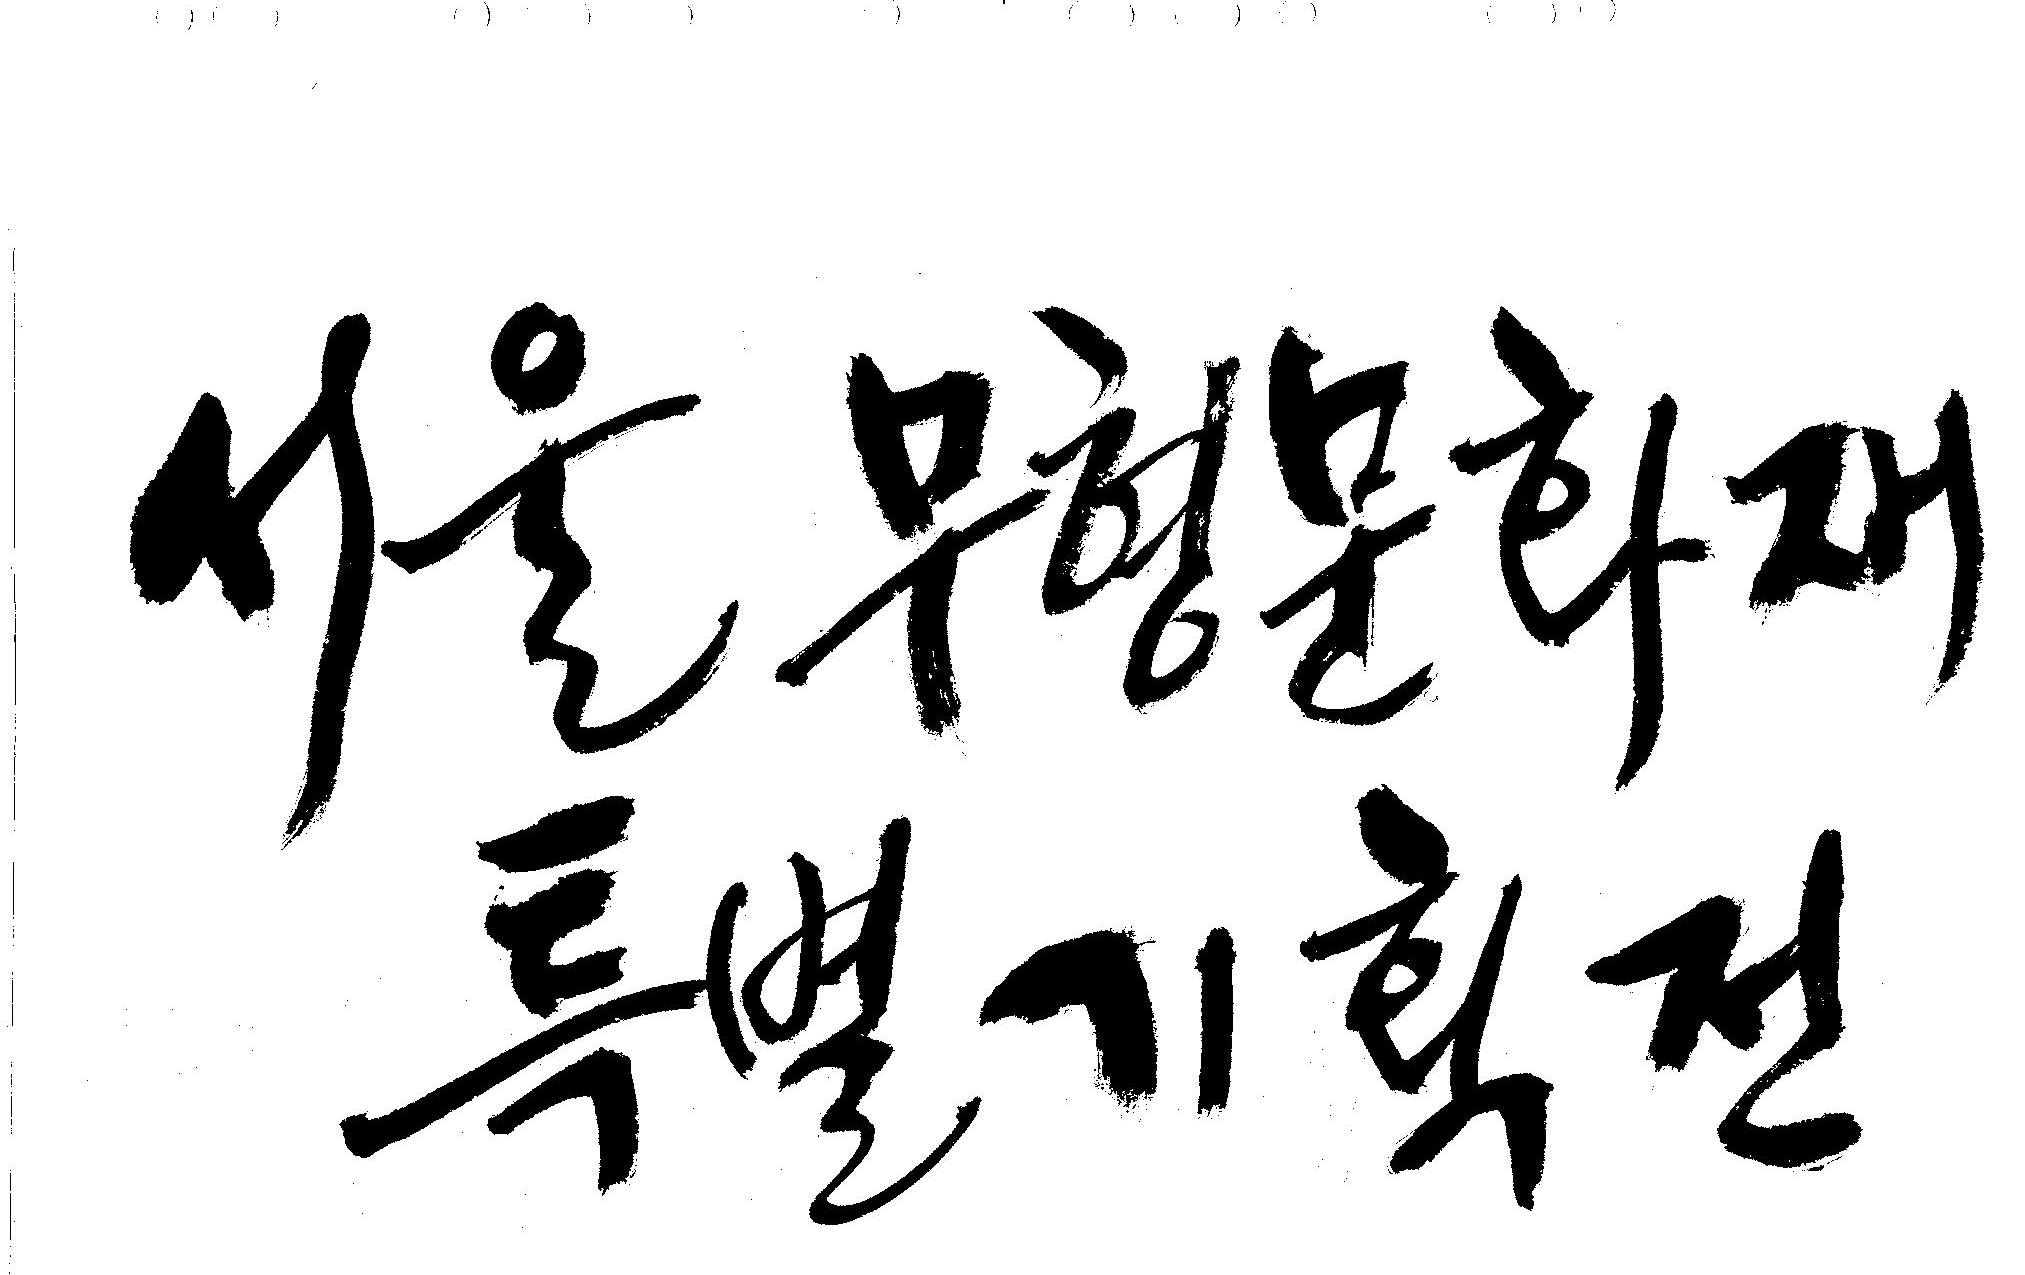 서울 무형문화재
특별기획전